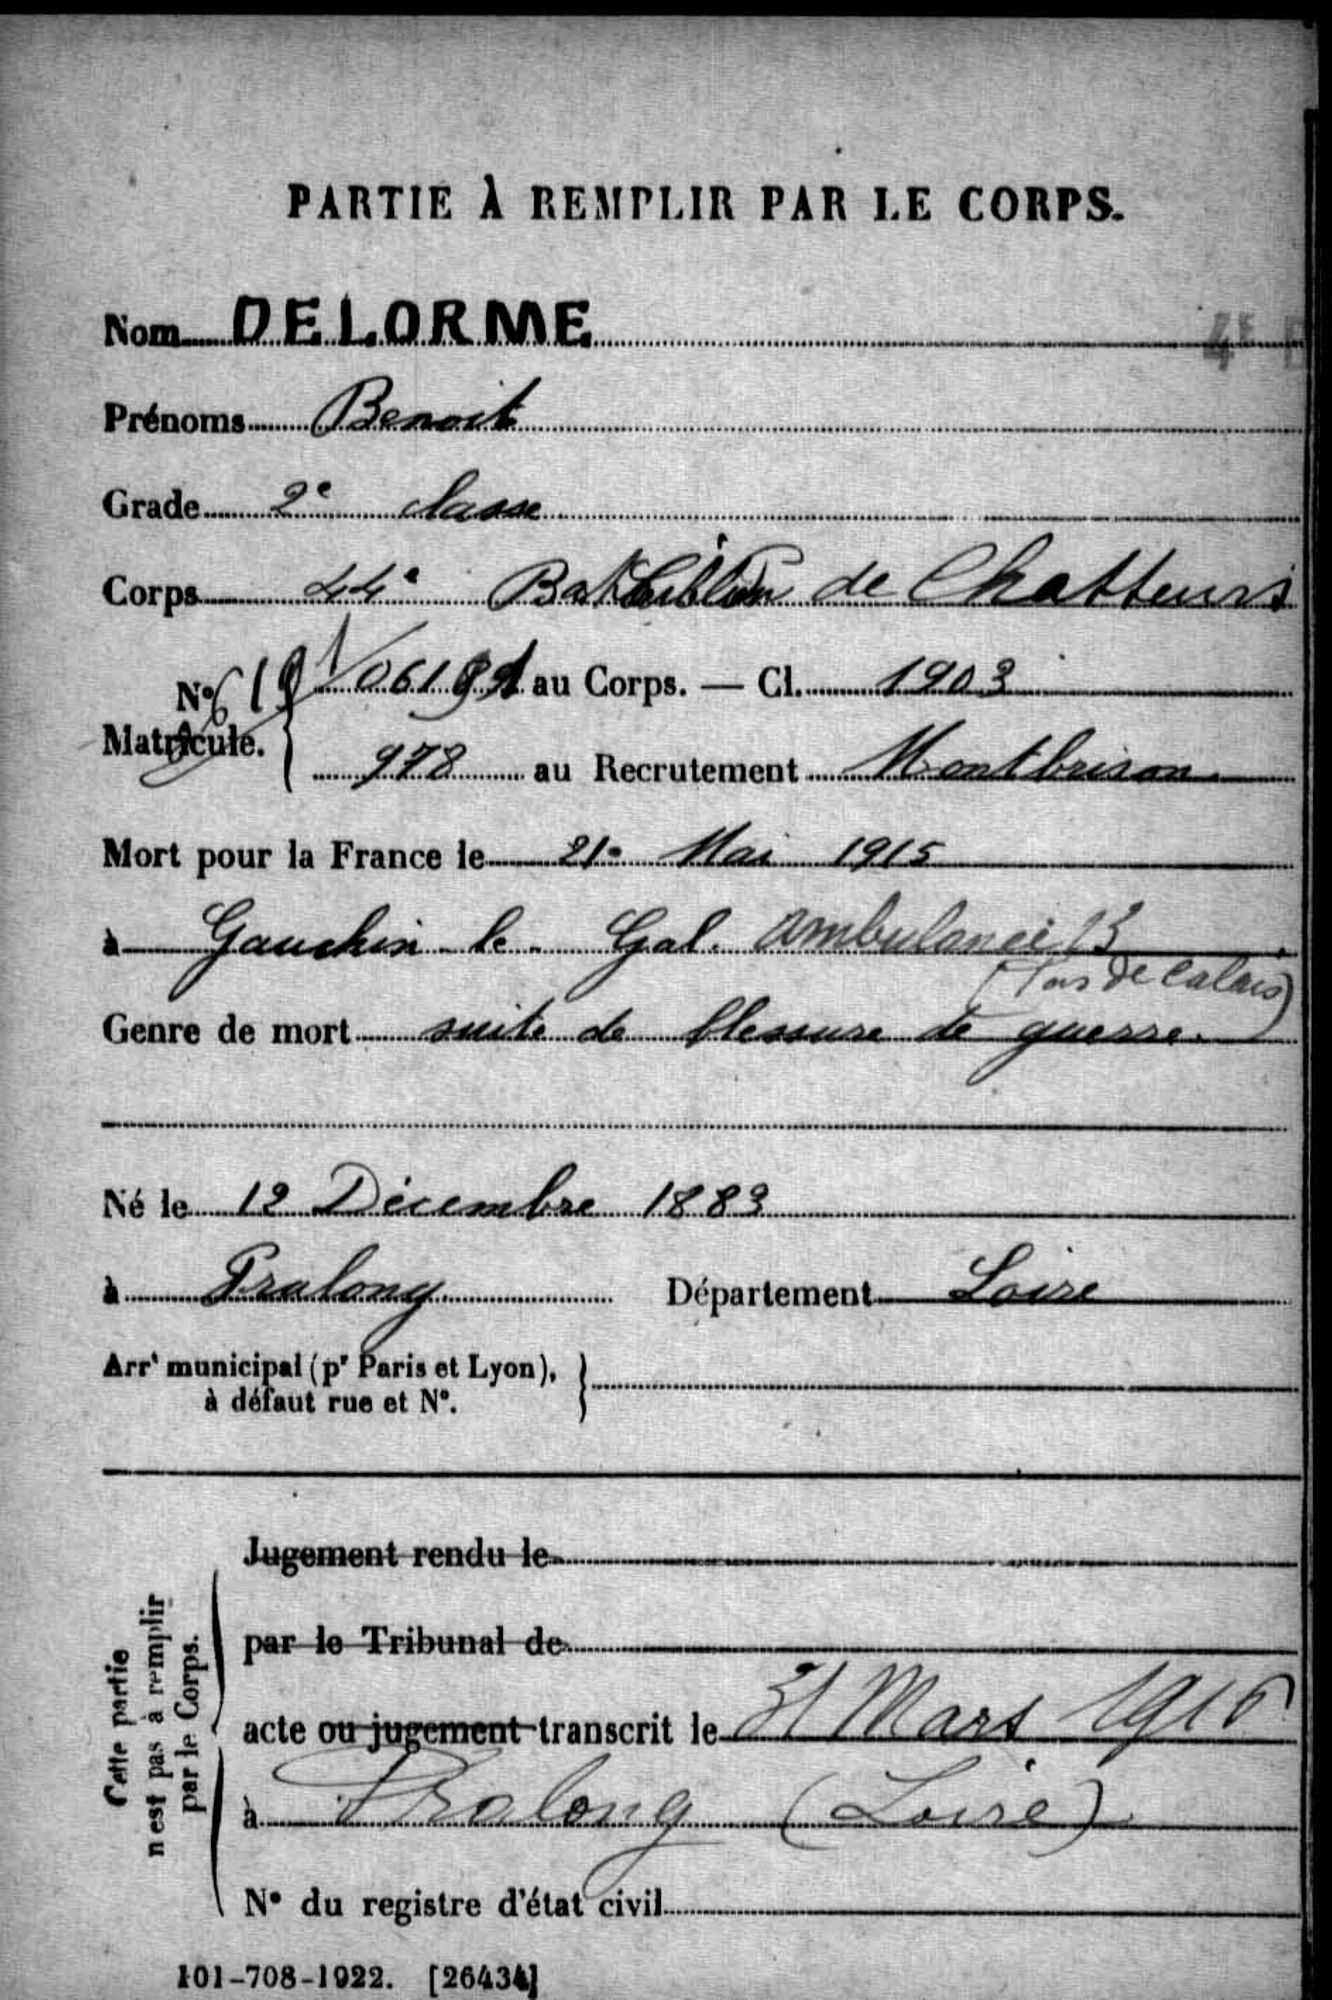 PARTIE À REMPLIR PAR LE CORPS.
Nom DELORME
4E
Prénoms Benoit
Grade 2e classe
Corps 44e Bataillon de Chasseurs
No 619 au Corps. — Cl. 1903
Matricule. 978 au Recrutement Montbrison
Mort pour la France le 21 Mai 1915
à Gauchin le Gal. Ambulance 13
(Pas de Calais)
Genre de mort suite de blessure de guerre.
Né le 12 Décembre 1883
à Pralong Département Loire
Arrt municipal (pr Paris et Lyon),
à défaut rue et No.
Jugement rendu le
par le Tribunal de
acte ou jugement transcrit le 31 Mars 1916
à Pralong (Loire)
No du registre d'état civil
Cette partie
n'est pas à remplir
par le Corps.
101-708-1922. [26434]